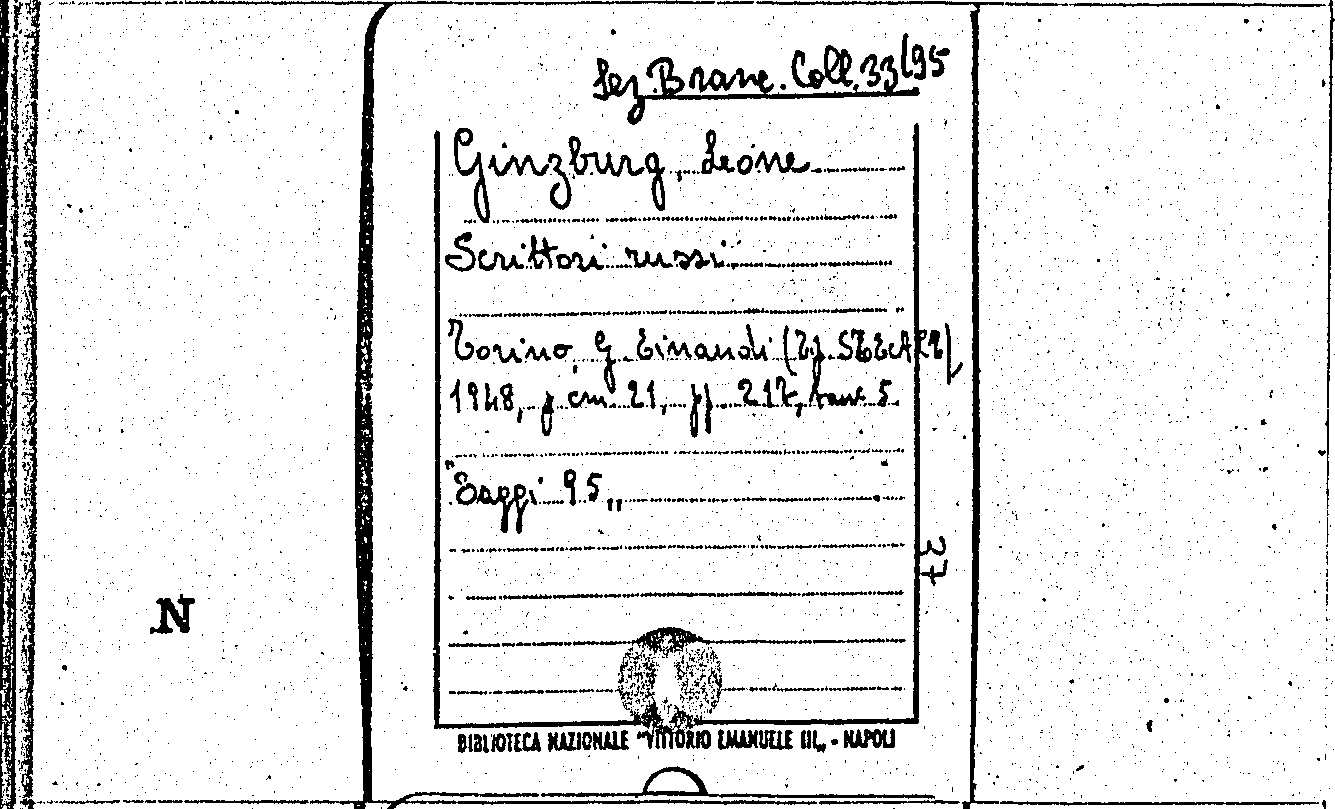 Sez. Branc. Coll. 33/95
Ginzburg, Leone
Scrittori russi.
Torino G. Einaudi (Tip. STECART),
1948, 8° cm 21, pp. 217, tav. 5.
"Saggi 95„
37
N
BIBLIOTECA NAZIONALE "VITTORIO EMANUELE III„ - NAPOLI